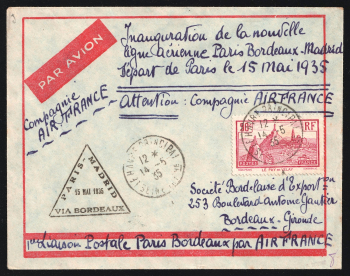 PAR AVION
Inauguration de la nouvelle
ligne aérienne Paris Bordeaux-Madrid
Départ de Paris le 15 Mai 1935
Compagnie
AIR FRANCE
Attention: Compagnie AIR FRANCE
LE HAVRE PRINCIPAL
12 *
14 -5
35
90c
RF
LE PUY-EN-VELAY
PARIS-MADRID
15 MAI 1935
VIA BORDEAUX
Société Bordelaise d'Export
253 Boulevard Antoine Gautier
Bordeaux - Gironde
1re Liaison Postale Paris Bordeaux par AIR FRANCE